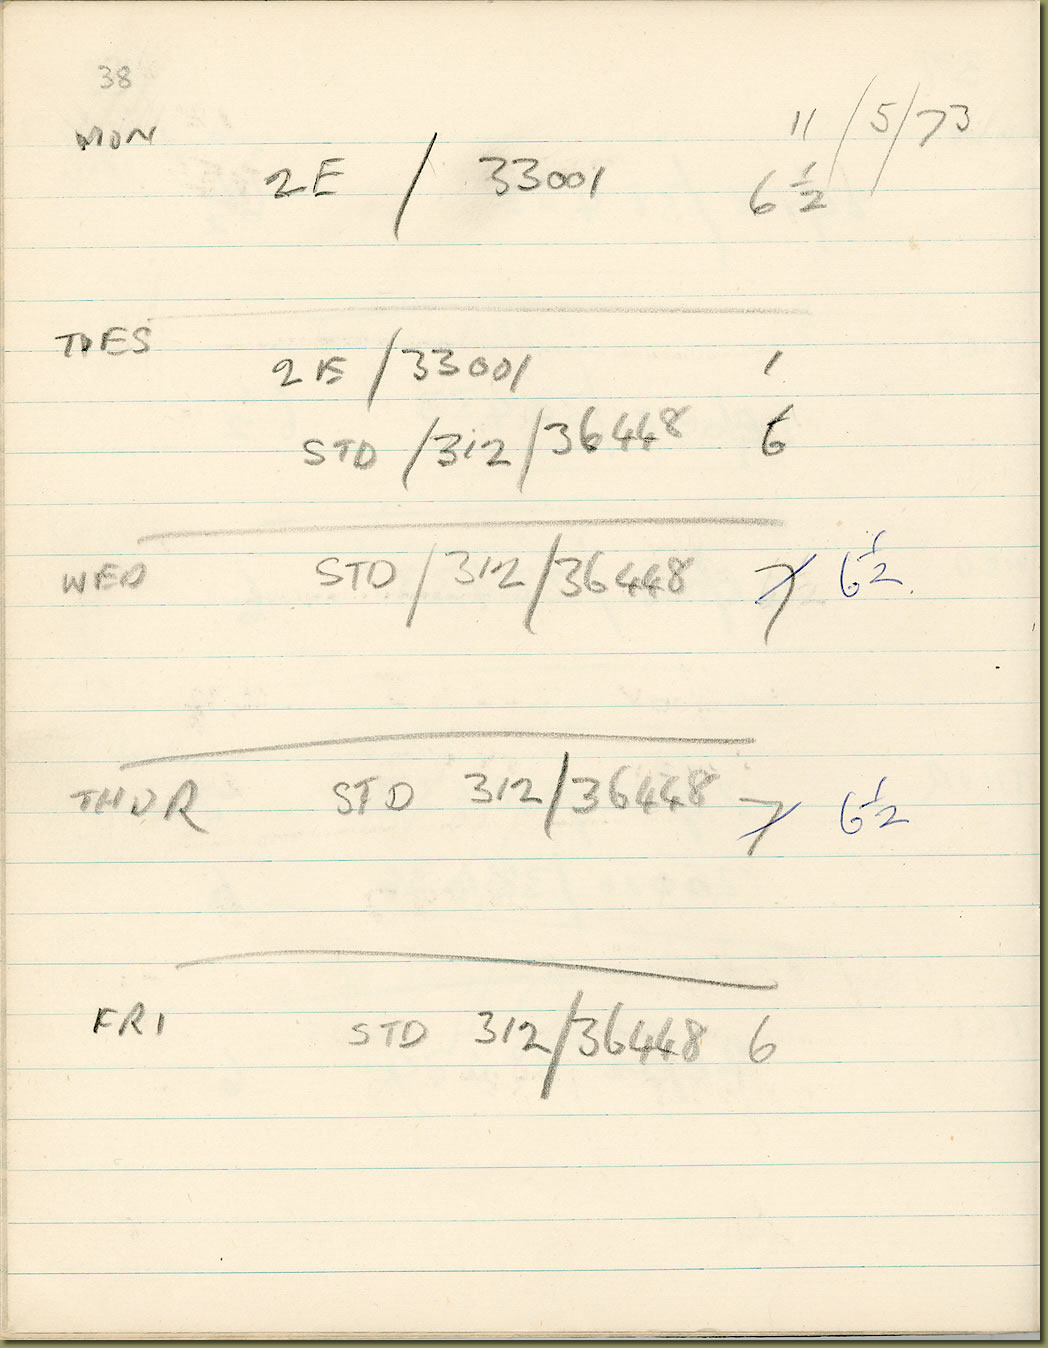 38
MON 11/5/73
2E / 33001 6 1/2
TUES
2E / 33001 1
STD / 312 / 36448 6
WED STD / 312 / 36448 7 6 1/2
THUR STD 312 / 36448 7 6 1/2
FRI STD 312 / 36448 6